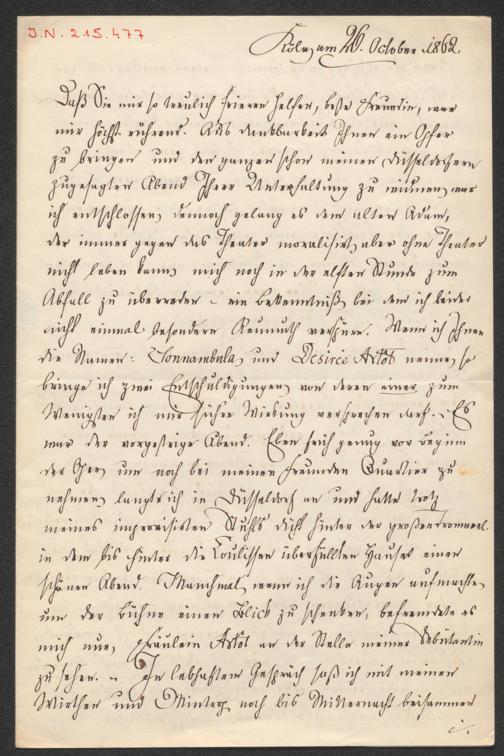 J.N. 215.477
Köln, am 26. October 1862.
Daß Sie mir so treulich frieren helfen, beste Freundin, war
mir höchst rührend. Aus Dankbarkeit Ihnen ein Opfer
zu bringen und den ganzen schon meinen Düsseldorfern
zugesagten Abend Ihrer Unterhaltung zu widmen, war
ich entschlossen, dennoch gelang es dem alten Adam,
der immer gegen das Theater moralisirt, aber ohne Theater
nicht leben kann, mich noch in der elften Stunde zum
Abfall zu überreden – ein Bekenntniß, bei dem ich leider
nicht einmal besondere Reumuth verspüre. Wenn ich Ihnen
die Namen: Sonnambula, und Desirée Artôt nenne, so
bringe ich zwei Entschuldigungen, von deren einer zum
Wenigsten ich mir sichre Wirkung versprechen darf. – Es
war der vorgestrige Abend. Eben früh genug vor Beginn
der Oper, um noch bei meinen Freunden Quartier zu
nehmen, langte ich in Düsseldorf an und hatte trotz
meines improvisirten Stuhls dicht hinter der großen Trommel
in dem bis hinter die Coulissen überfüllten Hause einen
schönen Abend. Manchmal, wenn ich die Augen aufmachte,
um der Bühne einen Blick zu schenken, befremdete es
mich nur, Fräulein Artôt an der Stelle meiner Debütantin
zu sehen. – In lebhaftem Gespräch saß ich mit meinen
Wirthen und Mintrop noch bis Mitternacht beisammen